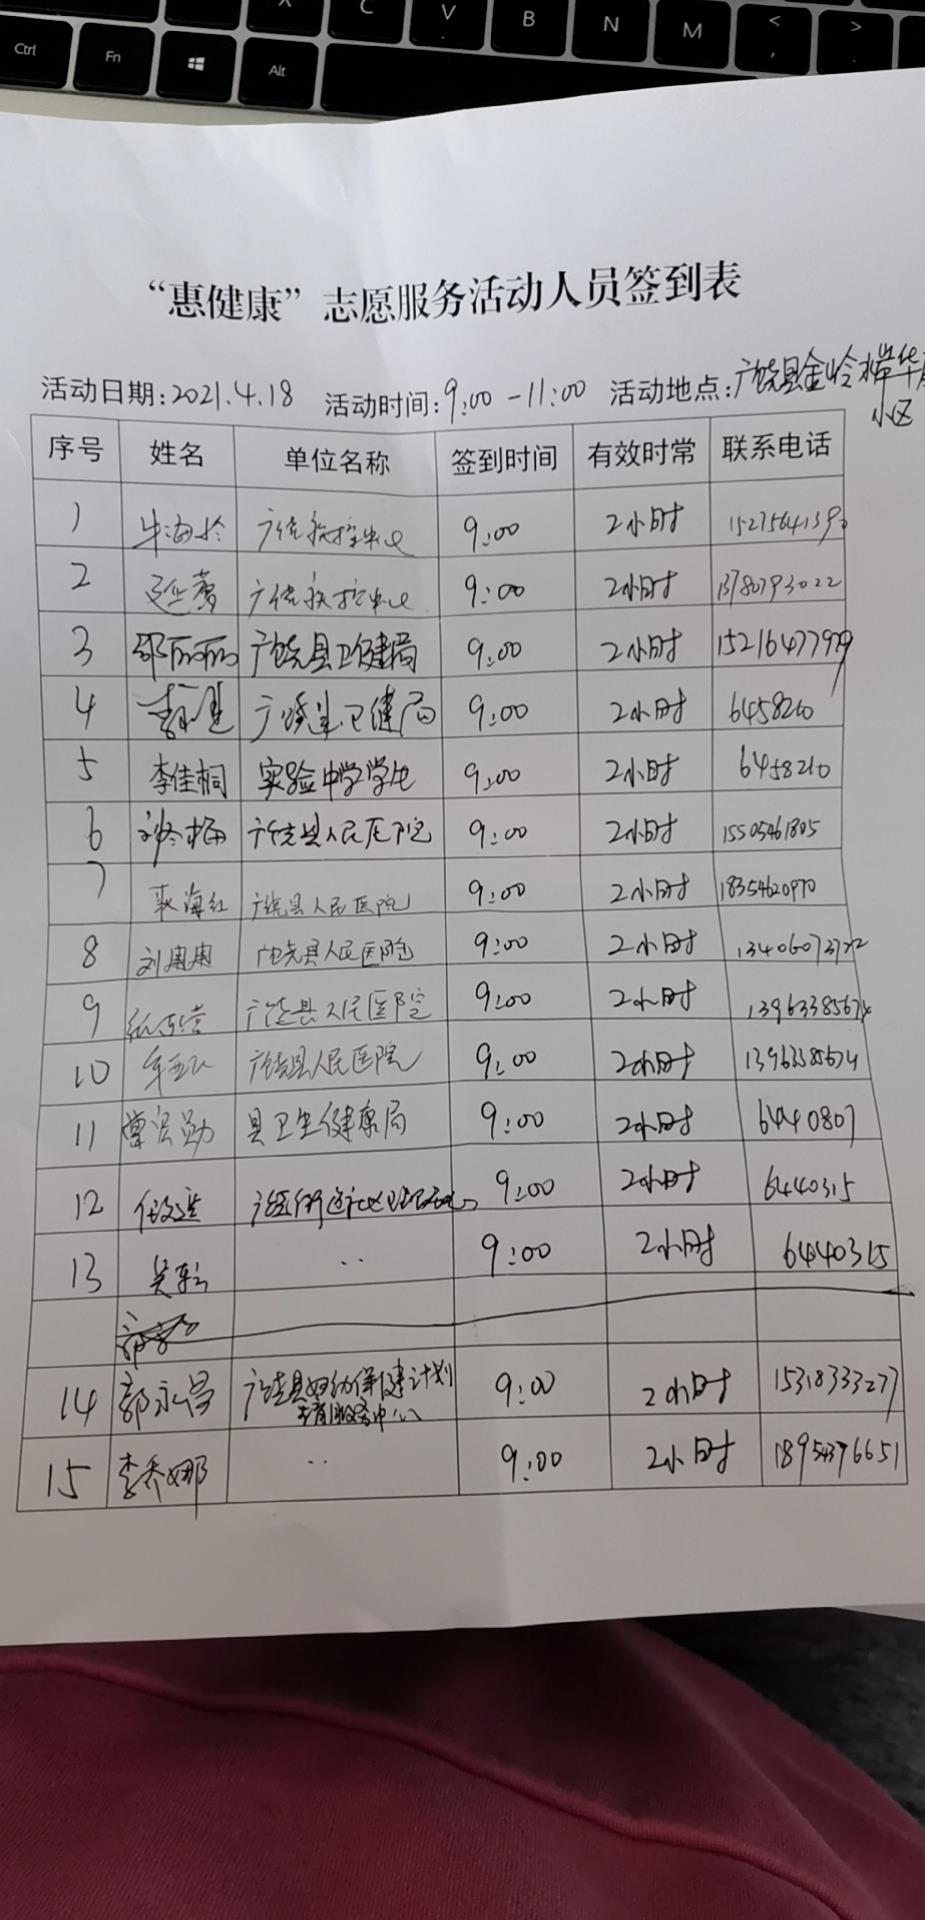 Ctrl Fn Alt
X C V B N M < , >
“惠健康”志愿服务活动人员签到表
活动日期:2021.4.18 活动时间:9:00-11:00 活动地点:广饶县金岭
小区
序号 姓名 单位名称 签到时间 有效时常 联系电话
1 牛海玲 广饶疾控中心 9:00 2小时
2 广饶疾控中心 9:00 2小时 13780793022
3 邵丽丽 广饶县卫健局 9:00 2小时
4 广饶县卫健局 9:00 2小时 6458210
5 李佳桐 实验中学学生 9:00 2小时 6458210
6 广饶县人民医院 9:00 2小时 15505461805
7 海红 广饶县人民医院 9:00 2小时 18354620970
8 刘康康 广饶县人民医院 9:00 2小时
9 广饶县人民医院 9:00 2小时 13963385674
10 广饶县人民医院 9:00 2小时 13963385674
11 县卫生健康局 9:00 2小时 6440807
12 9:00 2小时 6440315
13 ·· 9:00 2小时 6440315
14 郭永昌 广饶县妇幼保健计划 9:00 2小时 15318333277
生育服务中心
15 李乔娜 ·· 9:00 2小时 18954376651